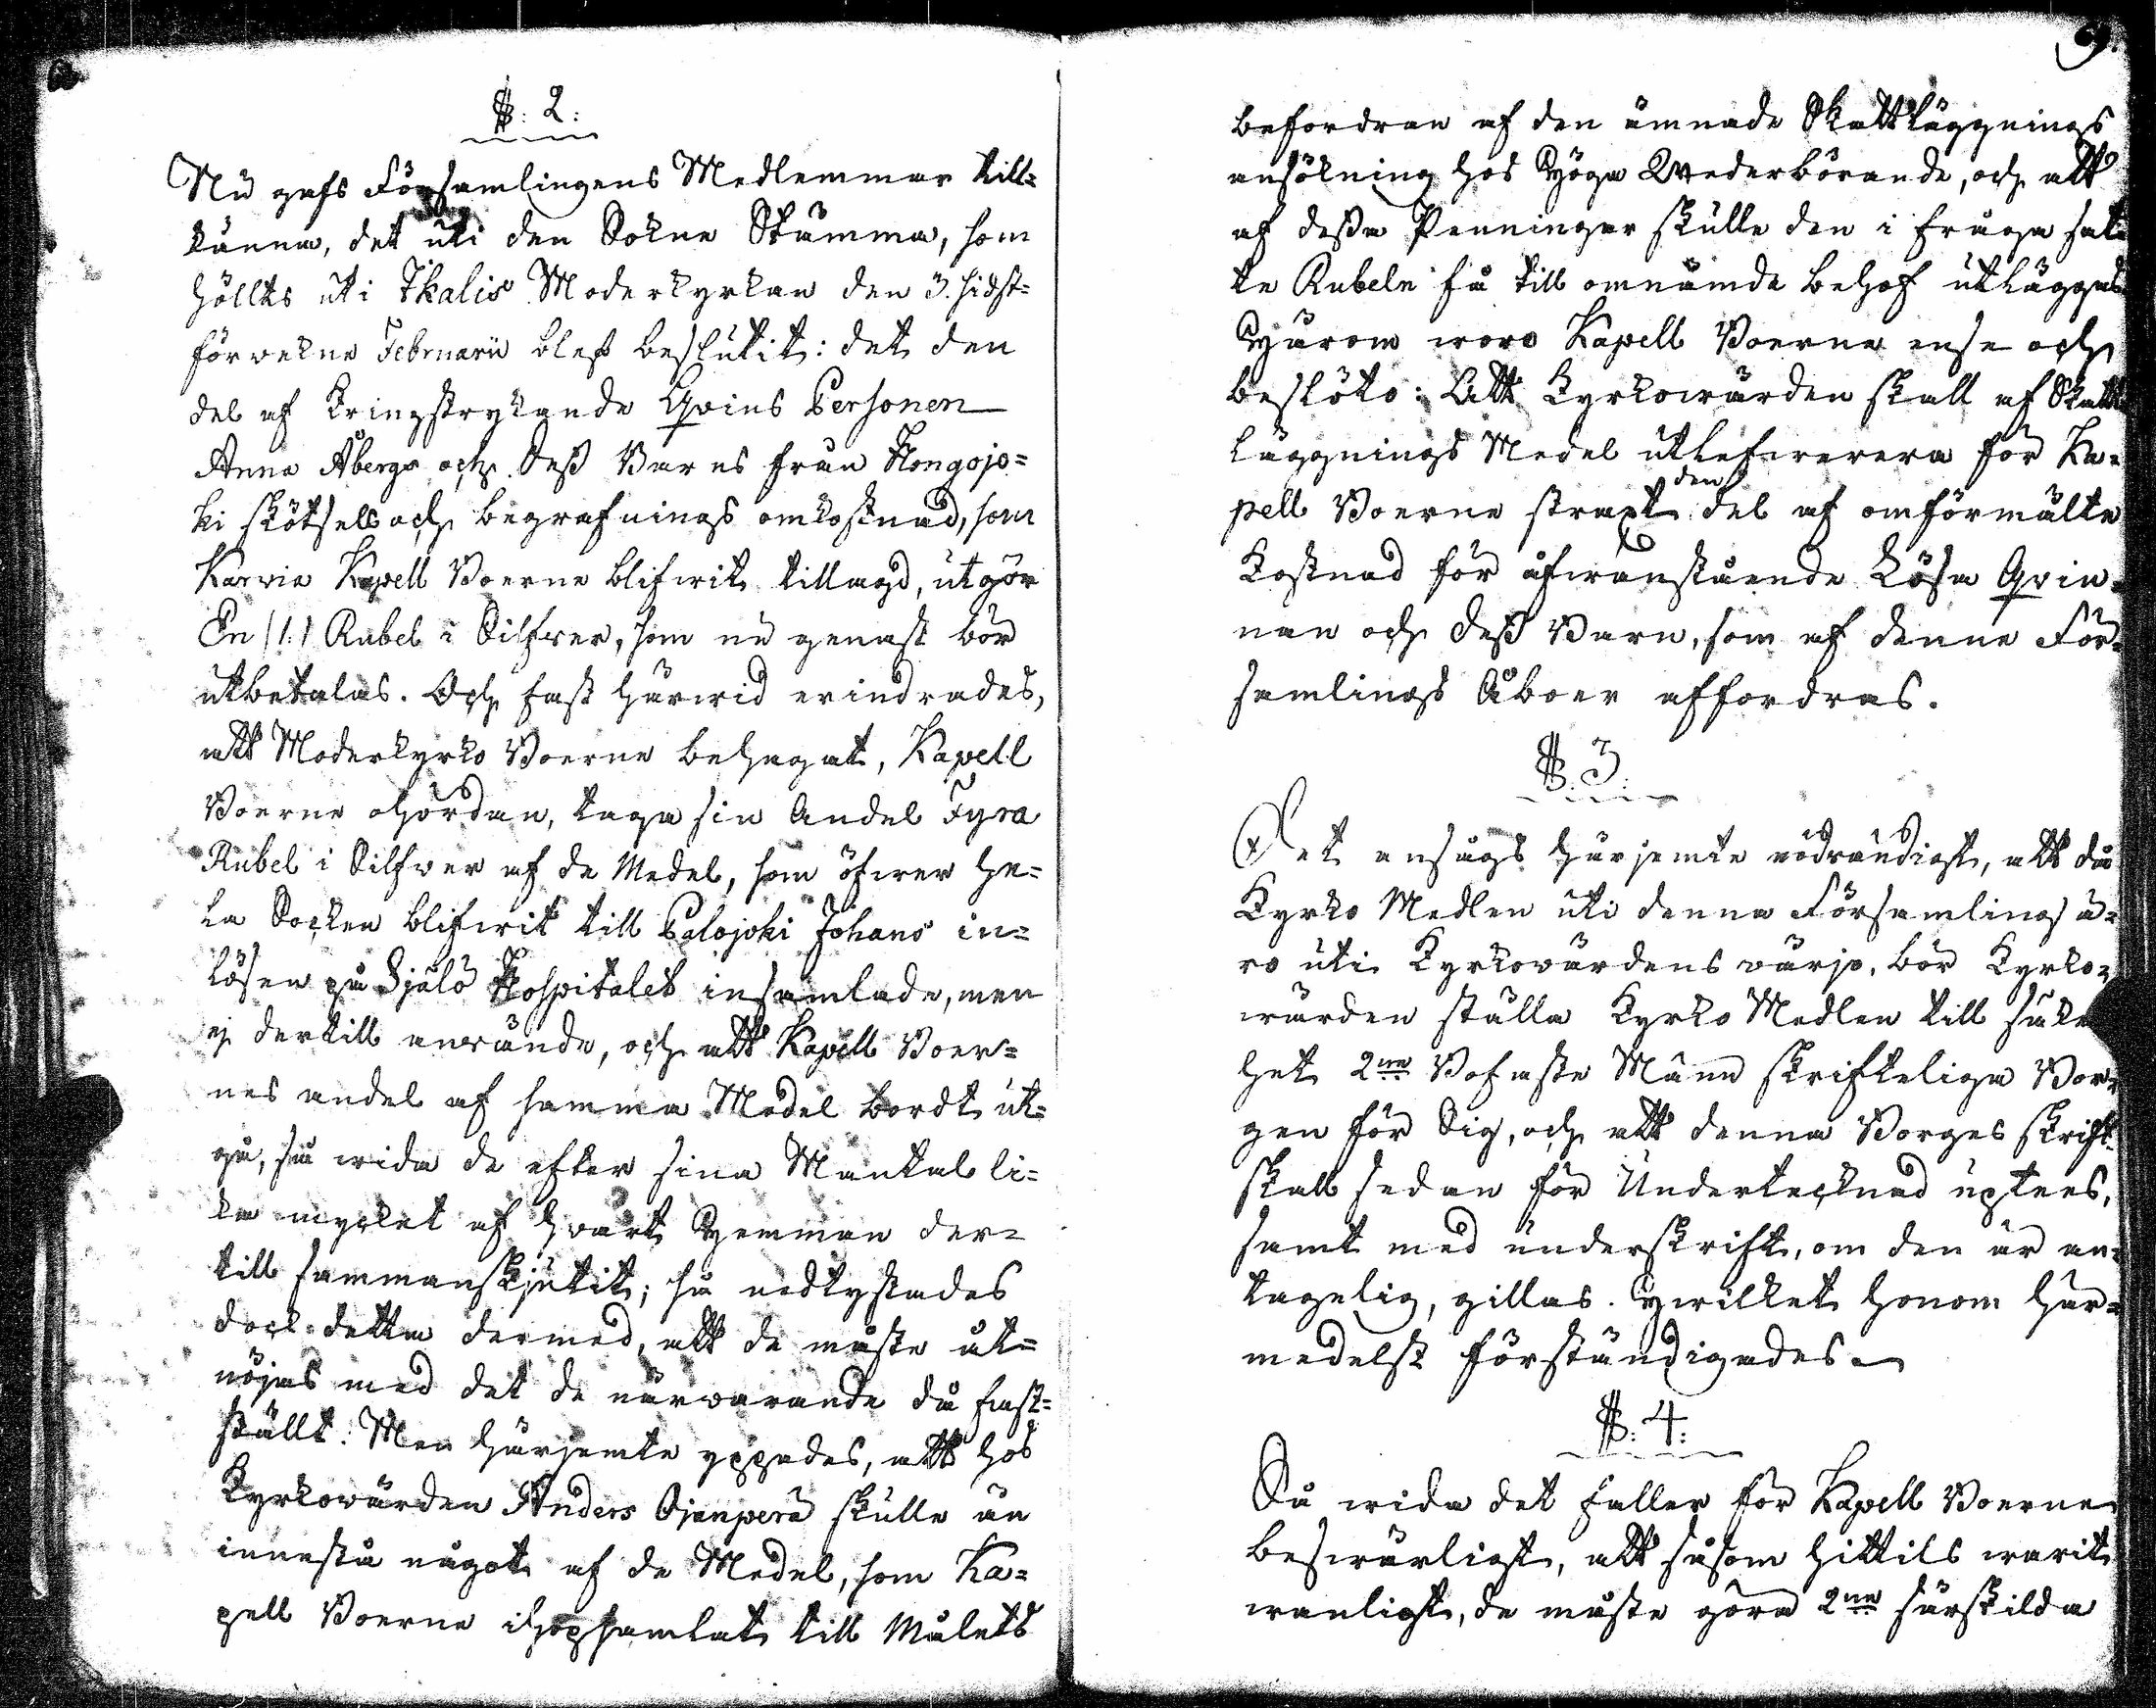 §: 2:
Nu gafs Församlingens Medlemmar till=
känna, det uti den Sokne Stämma, som
höllts uti Ikalis Moderkyrkan den 3. sidst=
förvekne Februarii blef beslutit: det den
del af kringstrykande Qvins Personen
Anna Åbergs och Dess Barns från Kongojo=
ki skötsels och begrafnings omkostnad, som
Karvia Kapell Boerne blifwit tillagd, utgör
En /1:/ Rubel i Silfwer, som nu genast bör
utbetalas. Och fast härwid erindrades,
att Moderkyrko Boerne behagat, Kapell
Boerne ohördan, taga sin Andel Fyra
Rubel i Silfwer af de Medel, som öfwer he=
la Socken blifwit till Palojoki Johans in=
lösen på Själö Hospitalet insamlade, men
ej dertill använde, och att Kapell Boer=
nes andel af samma Medel bordt ut=
gå, så wida de efter sina Mantal li=
ka mycket af hvart Hemman der=
till sammanskjutit; så nedtystades
dock detta dermed, att de måste åt=
nöjas med det de närvarande då fast=
ställt. Men härjemte yppades, att hos
Kyrkovärden Anders Ojanperä skulle än
innestå något af de Medel, som Ka=
pell Boerne ihopsamlat till Målets
9.
befordran af den ämnade Skattläggnings
ansökning hos Höga Wederbörande, och att
af dessa Penningar skulle den i fråga sat=
te Rubeln få till omnämde behof utläggas
Hvarom woro Kapell Boerna ense och
beslöto: Att Kyrkowärden skall af Skatt
läggnings Medel utlefwerera för Ka=
pell Boerne straxt den del af omförmälte
Kostnad för ofwanstående Lösa Qvin=
nan och dess Barn, som af denne För=
samlings Åboer affordras.
§: 3:
Det ansågs härjemte nödvändigt, att då
Kyrko Medlen uti denna Församling ä=
ro uti Kyrkovärdens värjo, bör Kyrko=
wärden ställa Kyrko Medlen till säker
het 2ne Bofaste Männ skrifteliga Bor=
gen för Sig, och att denna Borges skrift
skall sedan för Undertecknad upptees,
samt med underskrift, om den är an=
tagelig, gillas. Hwilket honom här=
medelst förständigades.
§: 4:
Så wida det faller för Kapell Boerne
beswärligt, att såsom hittils warit
wanligt, de måste göra 2ne särskilda